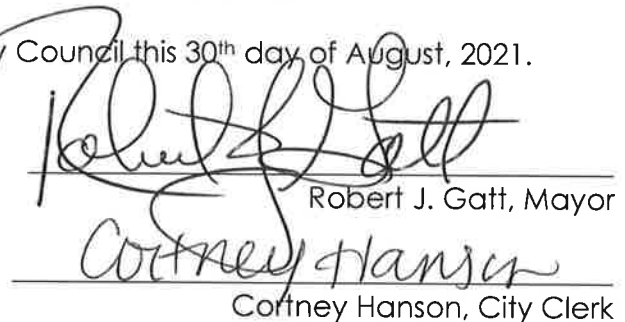 y Council this 30th day of August, 2021.
Robert J. Gatt
Robert J. Gatt, Mayor
Cortney Hanson
Cortney Hanson, City Clerk